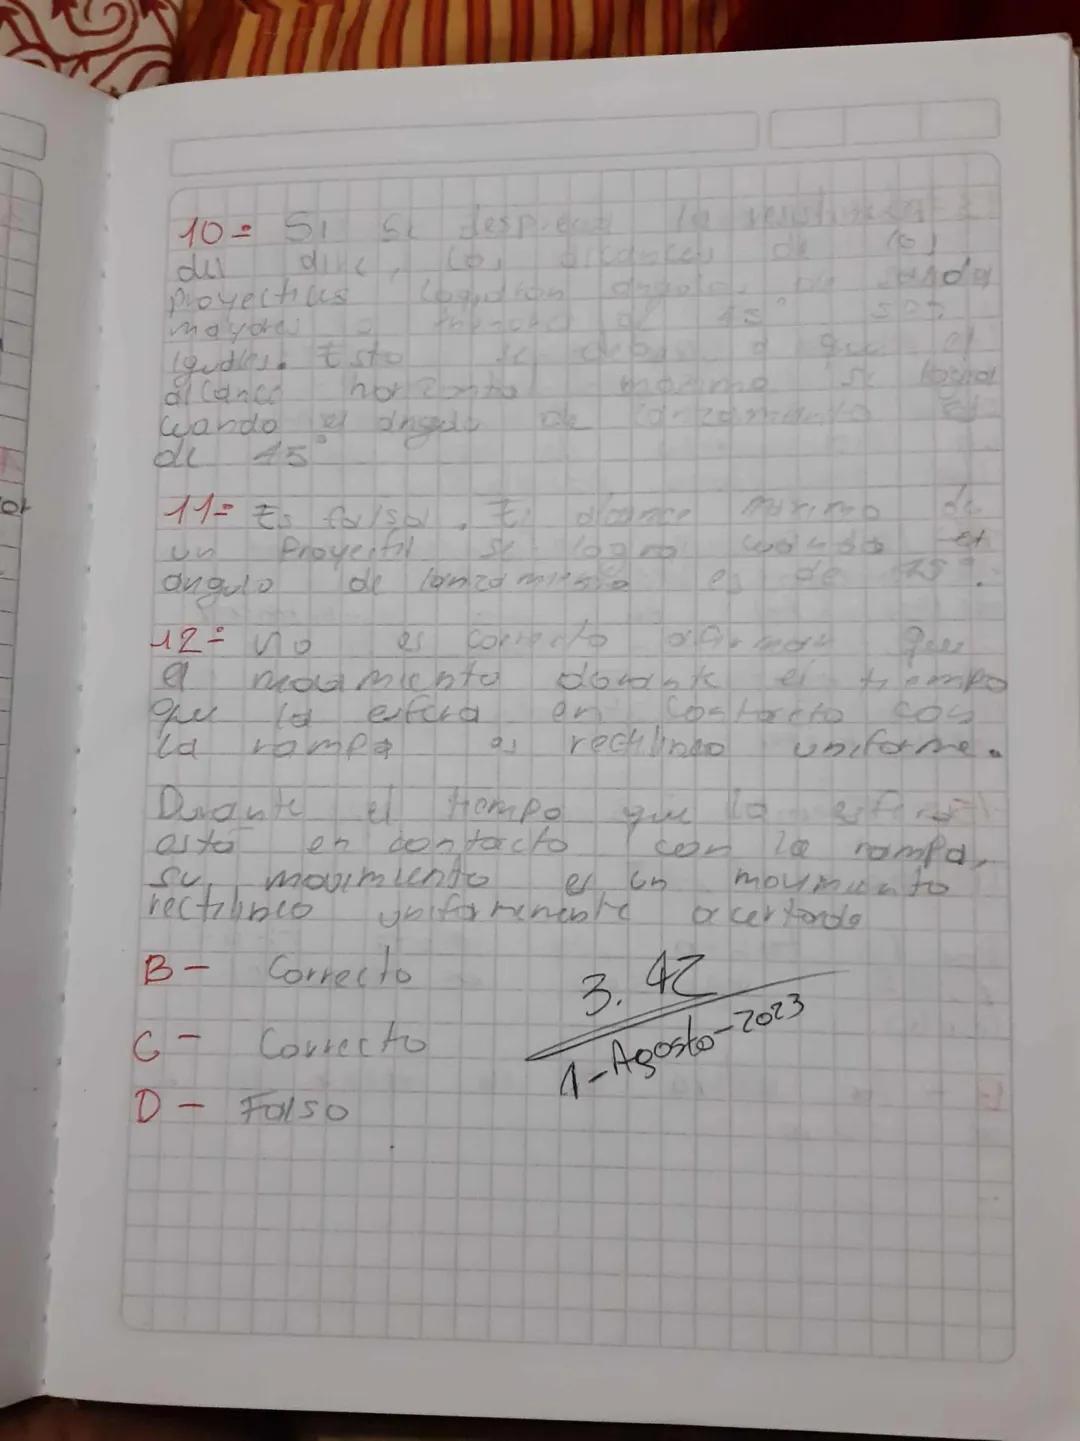 10= Si se desprecia la resistencia
del aire, los alcances de los
proyectiles
mayores o menores al 45° son
iguales. Esto se debe a que el
alcance horizontal maximo se logra
cuando el angulo de lanzamiento es
de 45°
11= Es falso. El alcance maximo de
un Proyectil se logra cuando el
angulo de lanzamiento es de 45°.
12= No es correcto afirmar que
el movimiento durante el tiempo
que la esfera en contacto con
la rampa es rectilineo uniforme.
Durante el tiempo que la esfera
está en contacto con la rampa,
su movimiento es un movimiento
rectilineo uniformemente
B- Correcto
C- Correcto
D- Falso
3.42
1-Agosto-2023